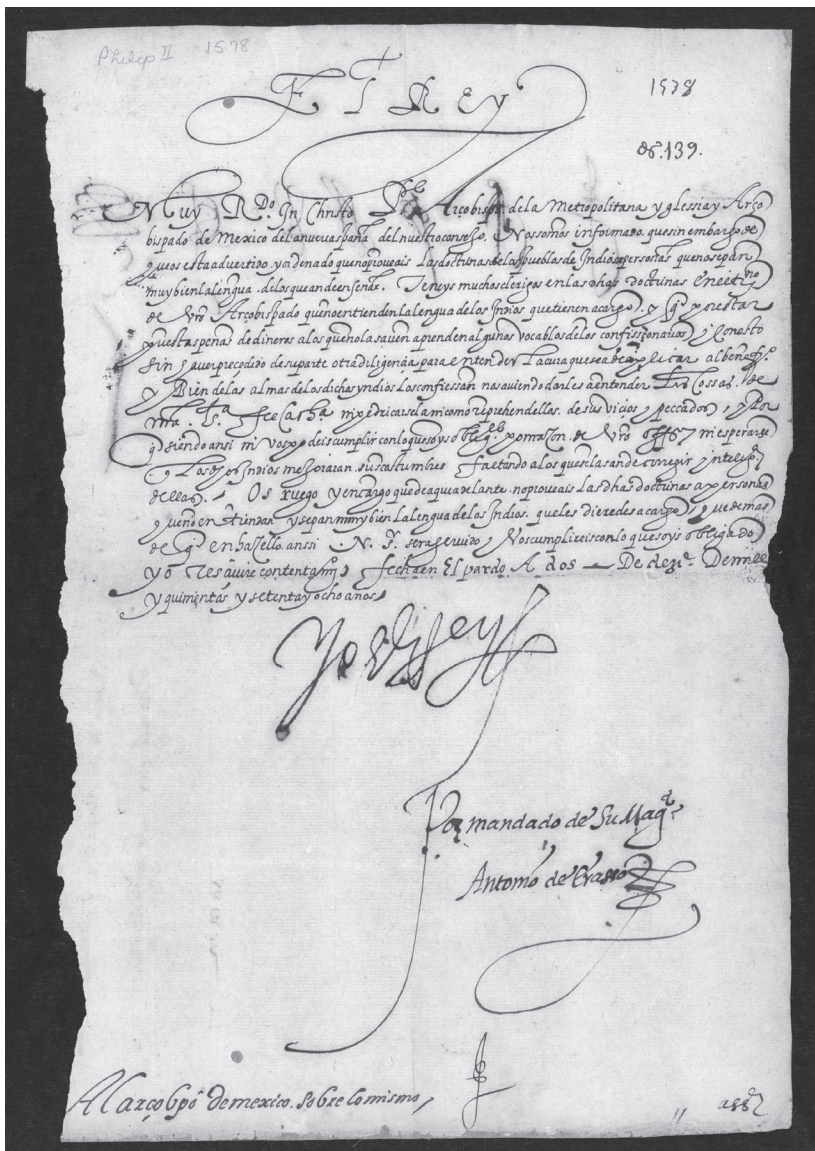 Philip II 1578
El Rey
1578
139.
Muy Rdo In Christo Pe Arçobispo de la Metropolitana yglessia y Arço
bispado de Mexico de la nueva españa del nuestro consejo. Nos somos informado que sin embargo de
que os esta advertido y ordenado que no proveais las doctrinas de los pueblos de Indios a personas que no sepan
muy bien la lengua de los que an de enseñar. Teneys muchos clerigos en las dhas doctrinas en
de vro Arçobispado que no entienden la lengua de los Indios que tienen a cargo, y q por estar
puestas penas de dineros a los que no la saven aprenden algunos vocablos de los confissionarios y con esto
sin aver precedido de su parte otra diligençia para entender la cura que se a de aplicar al benefo
y Bien de las almas de los dichos yndios los confiessan no aviendo darles a entender las cossas de
nra Sta fee Catha ni predicarsela ni como reprehendellos de sus vicios y peccados, y Por
q siendo ansi ni vos podeis cumplir con lo que soys por razon de vro offo ni esperarse
q Los dhos Indios mejoraran sus costumbres faltando a los que se las an de corregir y
dellas. Os ruego y encargo que de aqui adelante no proveais las dhas doctrinas a personas
que no entiendan y sepan muy bien la lengua de los Indios que les dieredes a cargo, que de mas
de q en hazello anssi N. S. sera servido y Vos cumplireis con lo que soys obligado
yo resçivire contentamio fecha en El pardo A dos De dezie De mill
y quinientos y setenta y ocho años
Yo el Rey
Por mandado de Su Magd
Antonio de Erasso
Al arçobpo de mexico. sobre lo mismo